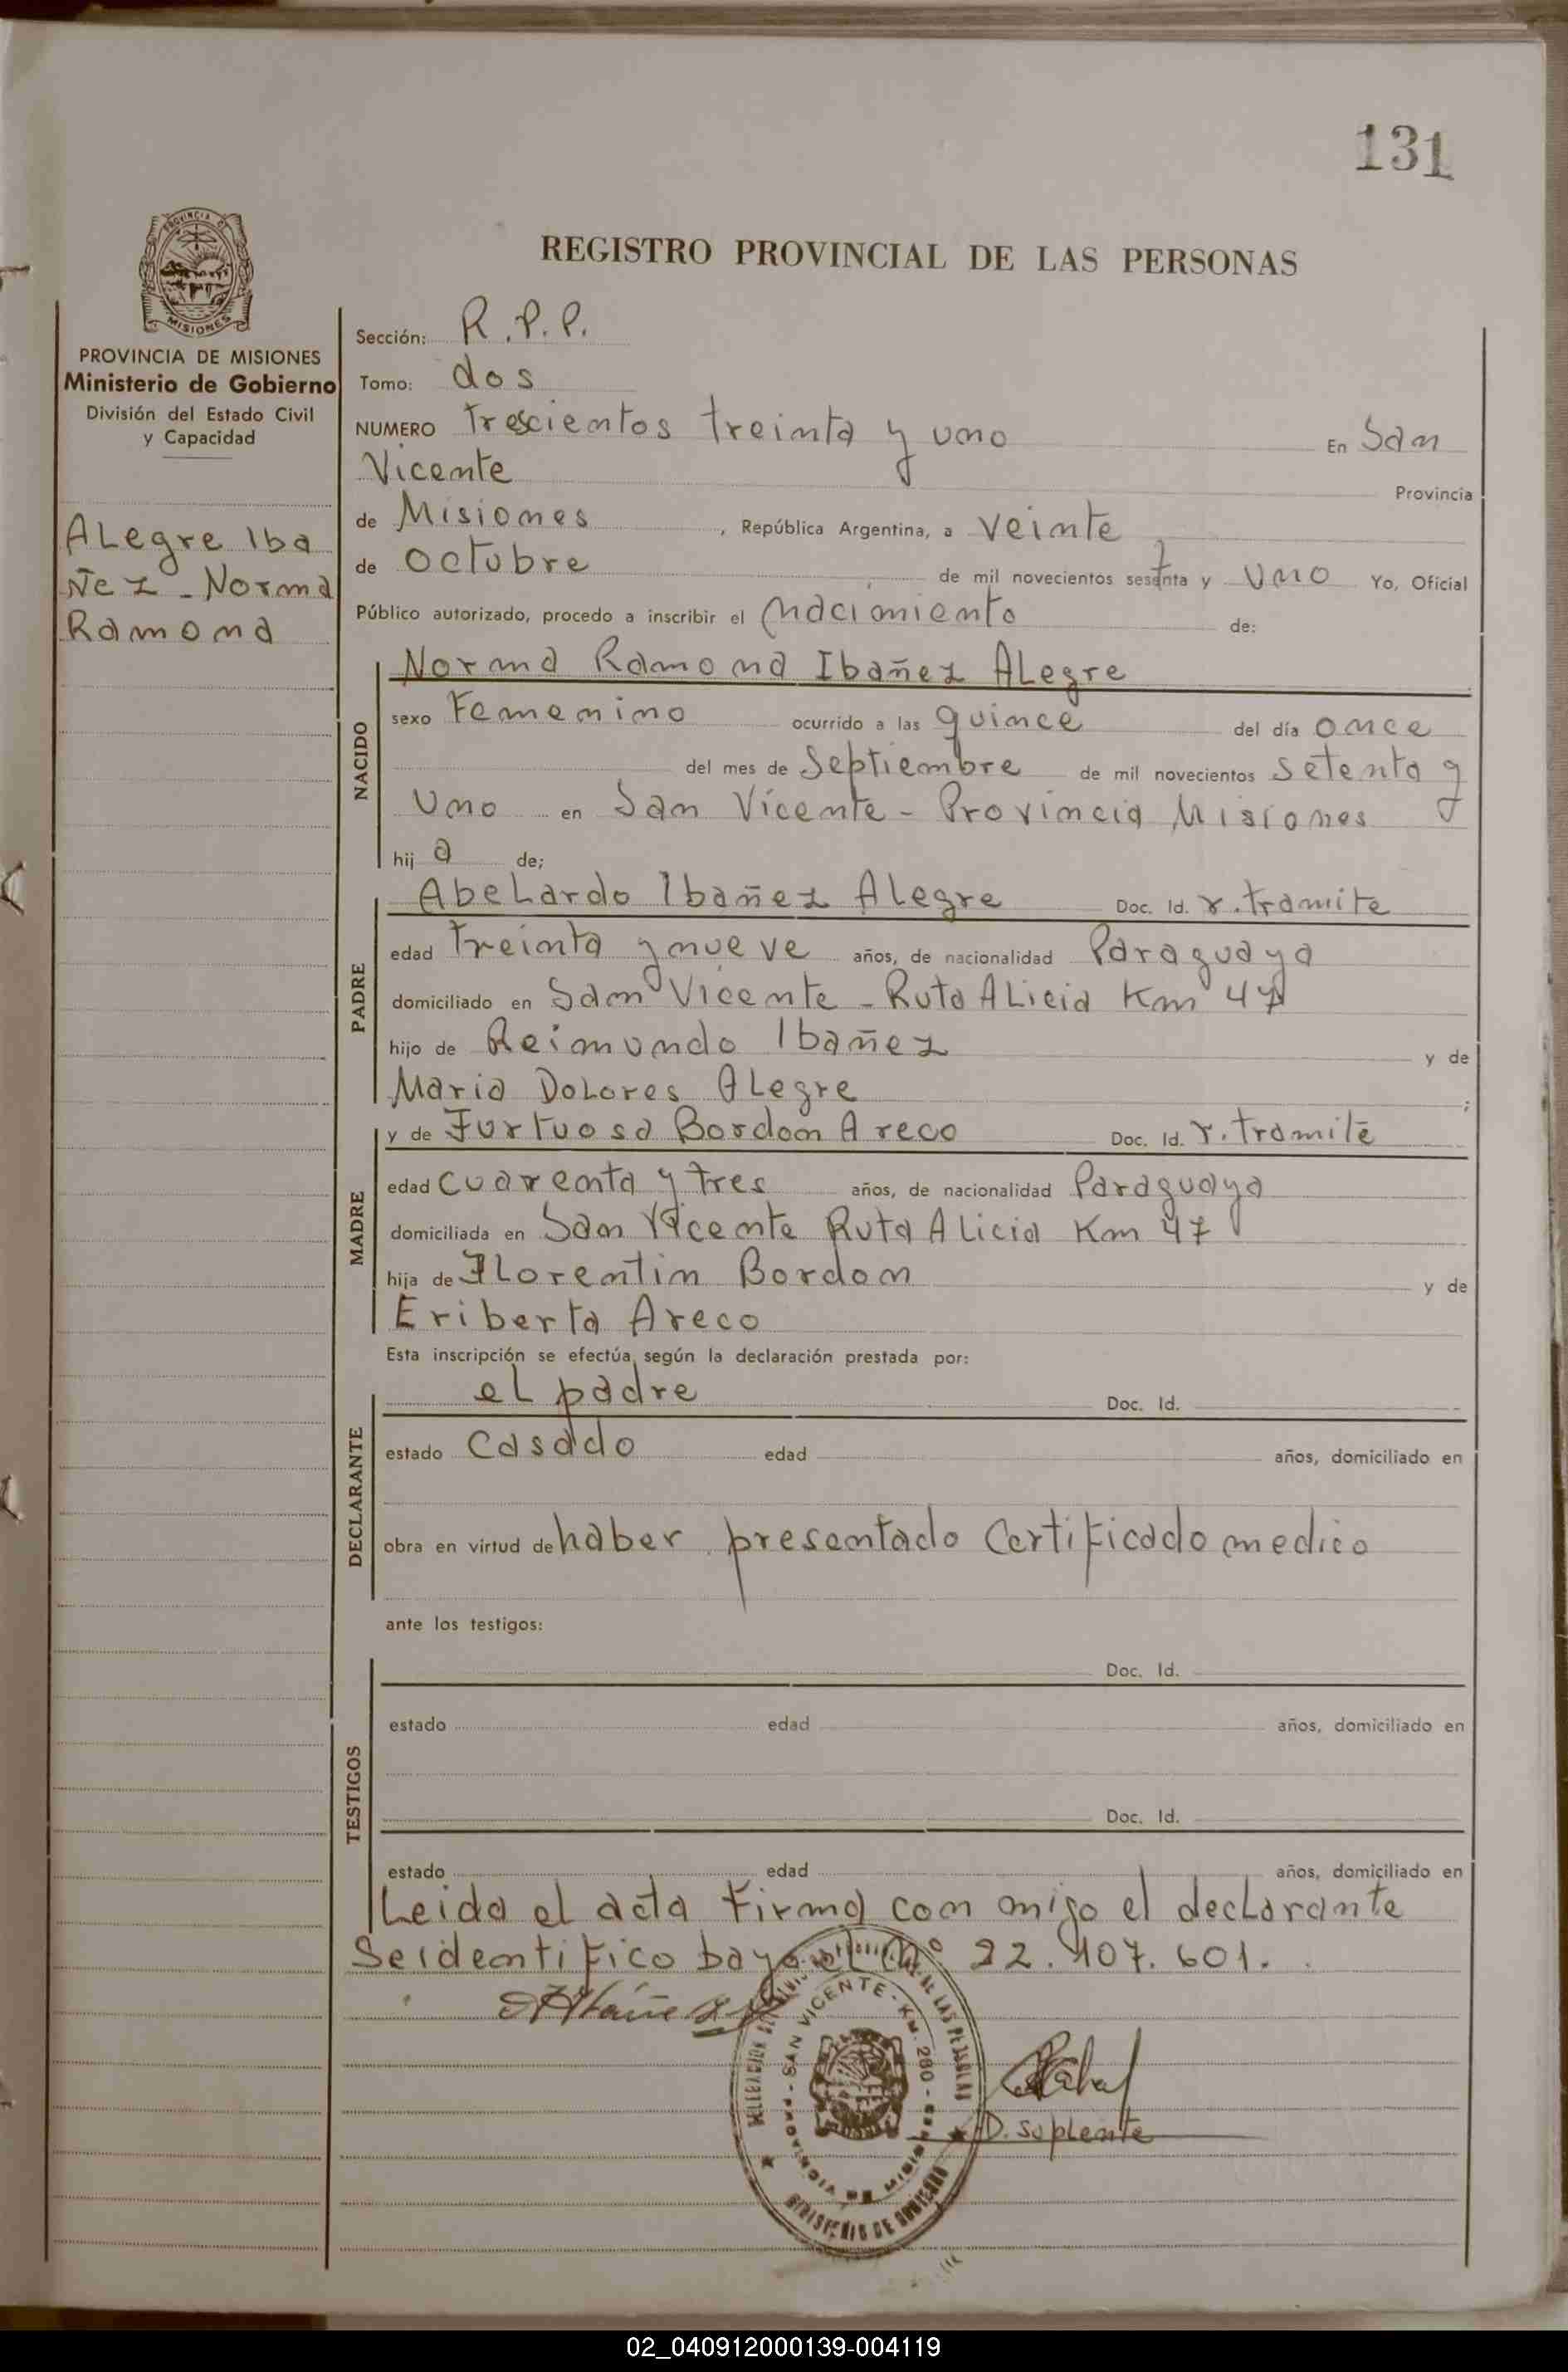 131
REGISTRO PROVINCIAL DE LAS PERSONAS
PROVINCIA DE MISIONES
Ministerio de Gobierno
División del Estado Civil
y Capacidad
ALegre Iba
ñez - Norma
Ramona
Sección: R.P.P.
Tomo: dos
NUMERO Trescientos treinta y uno En San
Vicente Provincia
de Misiones, República Argentina, a veinte
de octubre de mil novecientos sesenta y uno Yo, Oficial
Público autorizado, procedo a inscribir el nacimiento de:
NACIDO
Norma Ramona Ibañez ALegre
sexo Femenino ocurrido a las quince del día once
del mes de Septiembre de mil novecientos setenta y
uno en San Vicente - Provincia Misiones
hij a de;
PADRE
AbeLardo Ibañez ALegre Doc. Id. r. tramite
edad treinta y nueve años, de nacionalidad Paraguaya
domiciliado en San Vicente - Ruta ALicia Km 47
hijo de Reimundo Ibañez y de
Maria DoLores ALegre ;
MADRE
y de Furtuosa Bordon Areco Doc. Id. r. tramite
edad cuarenta y tres años, de nacionalidad Paraguaya
domiciliada en San Vicente Ruta ALicia Km 47
hija de FLorentin Bordon y de
Eriberta Areco
Esta inscripción se efectúa según la declaración prestada por:
DECLARANTE
eL padre Doc. Id.
estado Casado edad años, domiciliado en
obra en virtud de haber presentado Certificado medico
ante los testigos:
TESTIGOS
Doc. Id.
estado edad años, domiciliado en
Doc. Id.
estado edad años, domiciliado en
Leida el acta firma con migo el decLarante
Se identifico bajo el n° 22.107.601.
SAN VICENTE - KM. 280
PROVINCIA DE MISIONES
MINISTERIO DE GOBIERNO
D. suplente
02_040912000139-004119